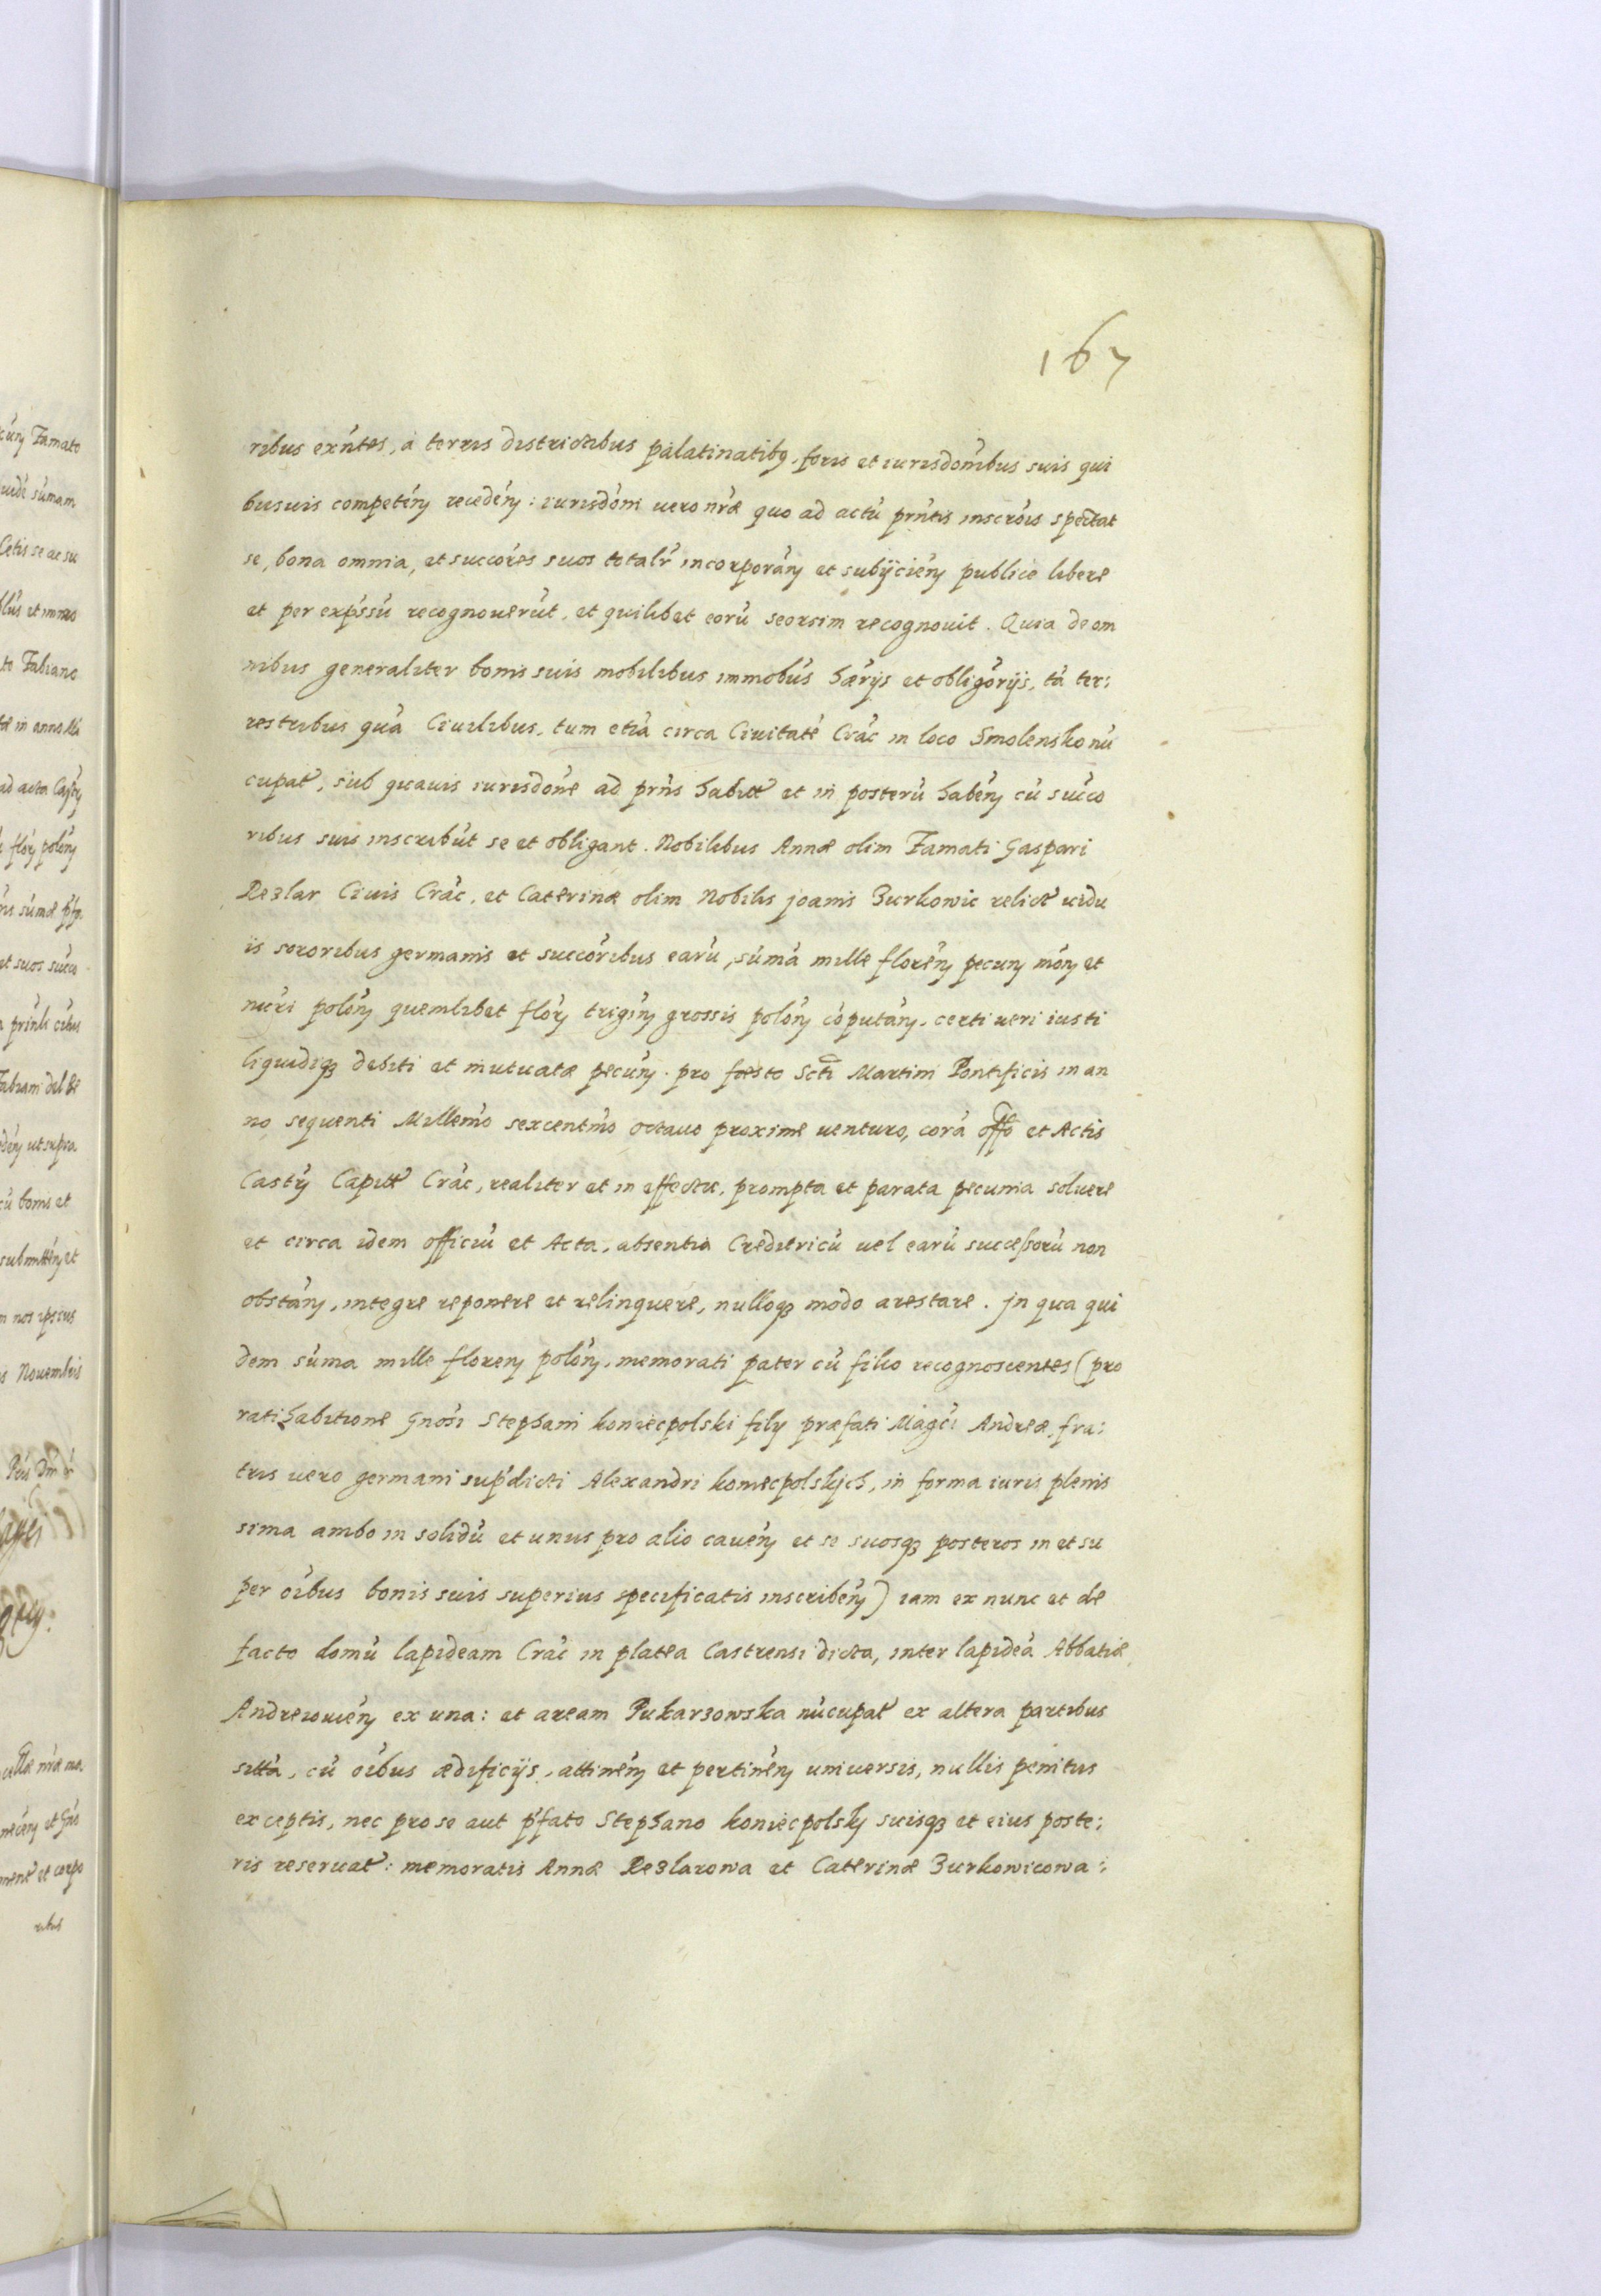 167
ribus exńtes, a terris districtibus palatinatibq, foris et iurisdonibus suis qui
busuis competén recedén: iurisdóni uero nrǽ quo ad actú prńtis inscrōis spectat
se, bona omnia, et succóres suos totalr incorporán et subijcién publice libere
et per expŕssú recognouerút, et quilibet eorú seorsim recognouit. Quia de om
nibus generaliter bonis suis mobilibus immobús hærijs et obligórijs, tá ter:
restribus quá Ciuilibus, tum etiá circa Ciuitaté Crác in loco Smolensko nú
cupat, sub quauis iurisdóne ad prńs habitt et in posterú habén cú súcco
ribus suis inscribút se et obligant. Nobilibus Annæ olim Famati Gaspari
Rezlar Ciuis Crác, et Caterinæ olim Nobilis joanis Zurkowic relict uidu
is sororibus germanis et succóribus earú, súmá mille florén pecun món et
núri polón quemlibet flór trigín grossis polón cópután, certi ueri iusti
liquidiq3 debiti et mutuatæ pecún pro foesto Scti Martini Pontificis in an
no sequenti Millemó sexcentmó octauo proxime uenturo, corá offo et Actis
Castrn Capitt Crác, realiter et in effectu, prompta et parata pecunia soluere
et circa idem officiú et Acta, absentia Creditricú uel earú succeßorú non
obstán, integre reponere et relinquere, nulloq3 modo arestare. jn qua qui
dem súma mille floren polón, memorati pater cú filio recognoscentes (pro
ratihabitione Gnósi Stephani koniecpolski filij præfati Magci Andreæ, fra:
tris uero germani supdicti Alexandri koniecpolskich, in forma iuris plenis
sima ambo in solidú et unus pro alio cauén et se suosq3 posteros in et su
per oíbus bonis suis superius specificatis inscribén) iam ex nunc et de
facto domú lapideam Crác in platea Castrensi dicta, inter lapideá Abbatiæ
Andreiouién ex una: et aream Pukarzowska núcupat ex altera partibus
sittá, cú oíbus ædificijs, attinén et pertinén uniuersis, nullis penitus
exceptis, nec pro se aut pfato Stephano koniecpolsky suisq3 et eius poste:
ris reseruat: memoratis Annæ Rezlarowa et Caterinæ Zurkowicowa: